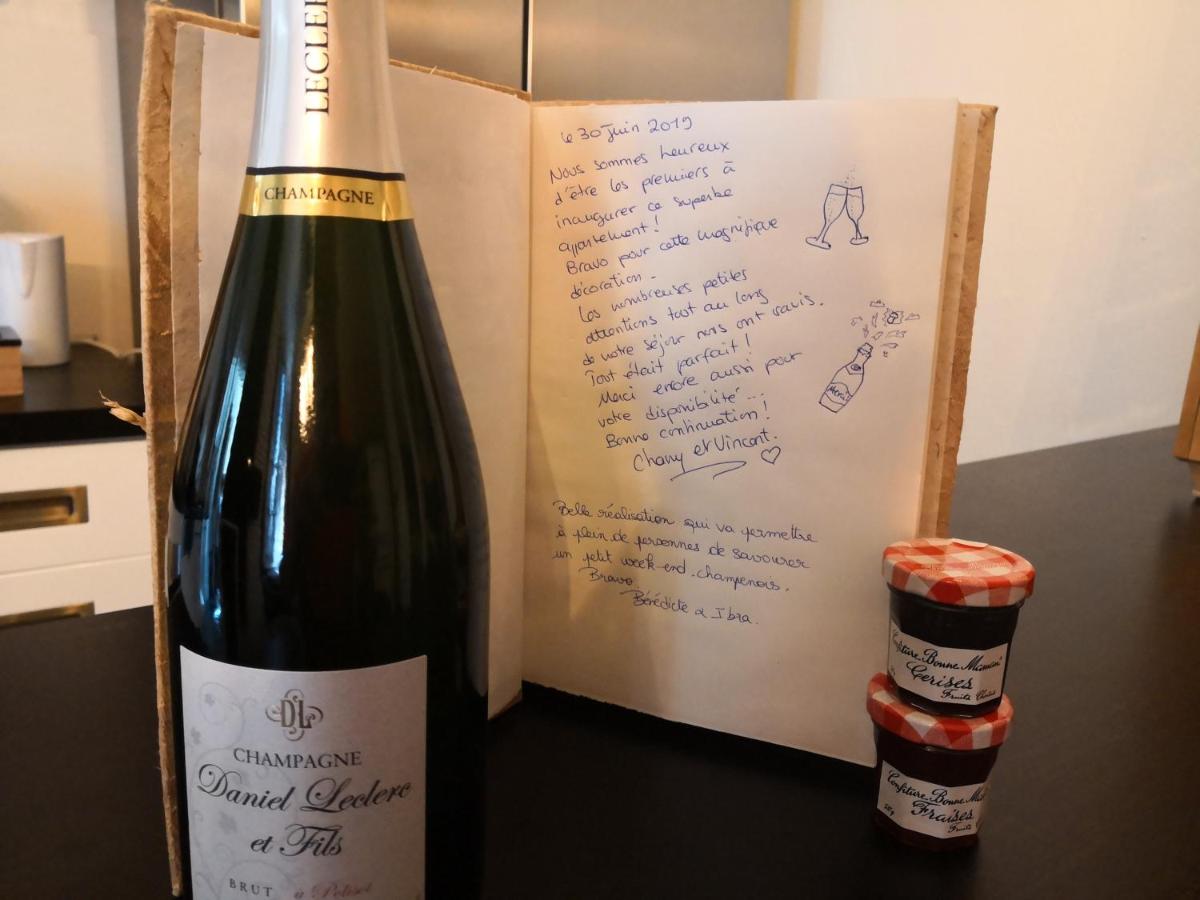 LECLER
CHAMPAGNE
DL
CHAMPAGNE
Daniel Leclerc
et Fils
BRUT à Polisot
le 30 Juin 2019
Nous sommes heureux
d'être les premiers à
inaugurer ce superbe
appartement!
Bravo pour cette magnifique
décoration.
Les nombreuses petites
attentions tout au long
de votre séjour nous ont ravis.
Tout était parfait!
Merci encore aussi pour
votre disponibilité...
Bonne continuation!
Chany et Vincent.
Merci
Belle réalisation qui va permettre
à plein de personnes de savourer
un petit week-end champenois.
Bravo
Bénédicte & Ibra.
Confiture Bonne Maman
Cerises
Fruits
Confiture Bonne
Fraises
Fruits